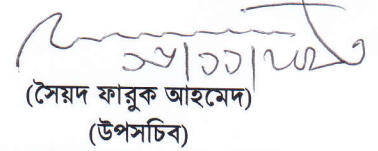 (সৈয়দ ফারুক আহমেদ)
(উপসচিব)